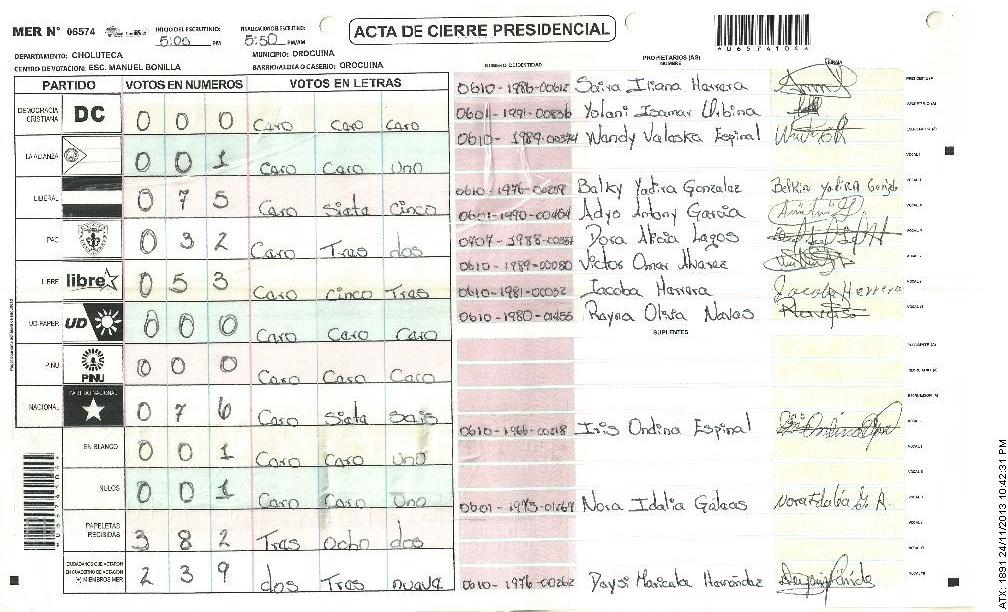 MER N° 06574 INICIO DEL ESCRUTINIO: 5:05 PM FINALIZACION DEL ESCRUTINIO: 5:50 PM/AM
ACTA DE CIERRE PRESIDENCIAL
DEPARTAMENTO: CHOLUTECA MUNICIPIO: OROCUINA
CENTRO DE VOTACION: ESC. MANUEL BONILLA BARRIO/ALDEA O CASERIO: OROCUINA
PARTIDO VOTOS EN NUMEROS VOTOS EN LETRAS
DEMOCRACIA CRISTIANA DC 0 0 0 Cero Cero Cero
LA ALIANZA 0 0 1 Cero Cero Uno
LIBERAL 0 7 5 Cero Siete Cinco
PAC 0 3 2 Cero Tres dos
LIBRE libre 0 5 3 Cero Cinco Tres
UD-FAPER UD 0 0 0 Cero Cero Cero
PINU PINU 0 0 0 Cero Cero Cero
NACIONAL PARTIDO NACIONAL 0 7 6 Cero Siete Seis
EN BLANCO 0 0 1 Cero Cero Uno
NULOS 0 0 1 Cero Cero Uno
PAPELETAS RECIBIDAS 3 8 2 Tres Ocho dos
CIUDADANOS QUE VOTARON EN CUADERNO DE VOTACION (+) MIEMBROS MER 2 3 9 dos Tres nueve
NUMERO DE IDENTIDAD PROPIETARIOS (AS) NOMBRE FIRMA
0610-1986-00612 Saira Iliana Herrera
0601-1991-00836 Yolani Isamar Urbina
0610-1989-00374 Wendy Valeska Espinal
0610-1976-00259 Belky Yadira Gonzalez Belkin Yadira Gonzalez
0601-1990-00464 Adyo Antony Garcia
0707-1988-00331 Dora Alicia Lagos
0610-1989-00080 Victor Omar Alvarez
0610-1981-00052 Jacoba Herrera Jacoba Herrera
0610-1980-01455 Reyna Olivia Navas
SUPLENTES
0610-1966-00218 Iris Ondina Espinal
0601-1973-01269 Nora Idalia Galeas Nora Idalia G. A.
0610-1976-00262 Deysi Maricela Hernández
ATX: 1891 24/11/2013 10:42:31 PM